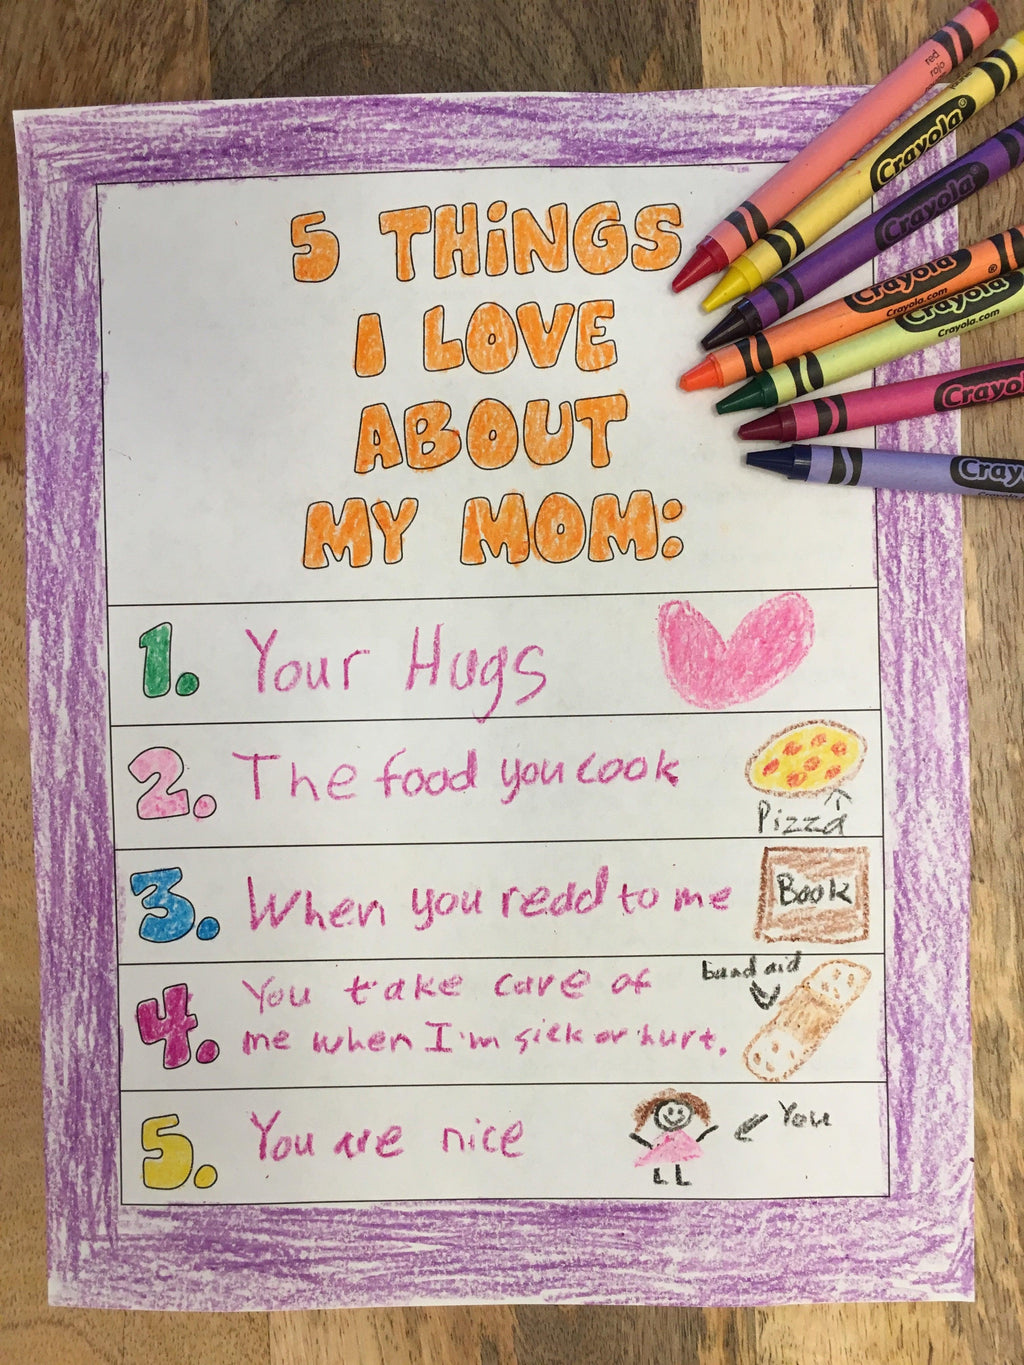 red
rojo
Crayola®
Crayola®
Crayola®
Crayola.com
Crayola
Crayola.com
Crayol
Cray
5 THiNGS
I LOVE
ABOUT
MY MOM:
1. Your Hugs
2. The food you cook
Pizza
3. When you redd to me
Book
4. You take care of
me when I'm sick or hurt.
band aid
5. You are nice
You